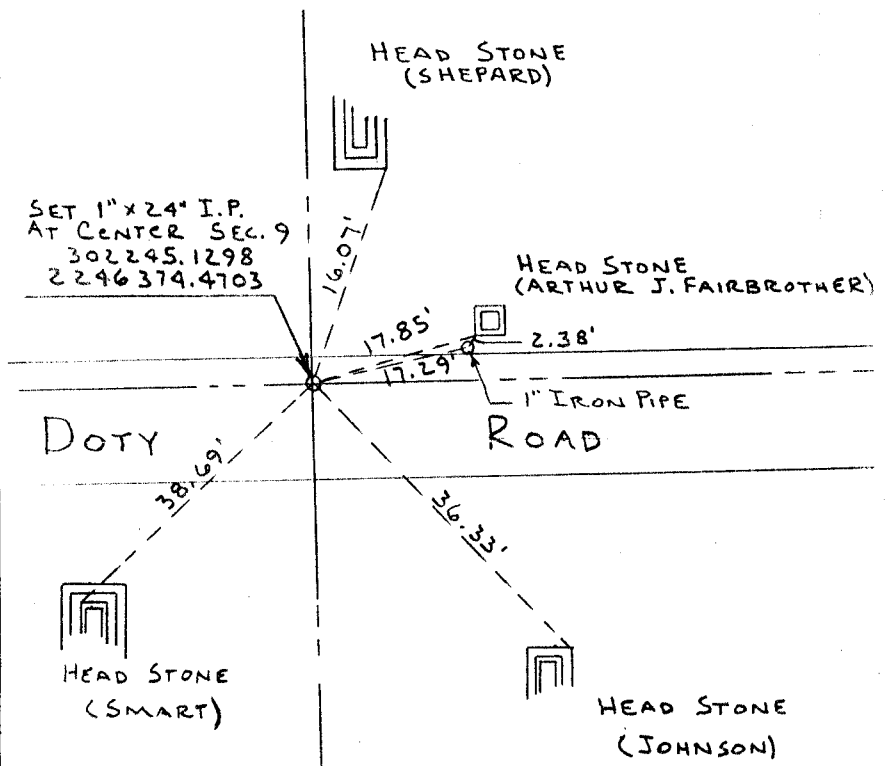 HEAD STONE
(SHEPARD)
SET 1" x 24" I.P.
AT CENTER SEC. 9
302245.1298
2246374.4703
16.07'
HEAD STONE
(ARTHUR J. FAIRBROTHER)
17.85'
2.38'
17.29'
1" IRON PIPE
DOTY ROAD
38.69'
36.33'
HEAD STONE
(SMART)
HEAD STONE
(JOHNSON)